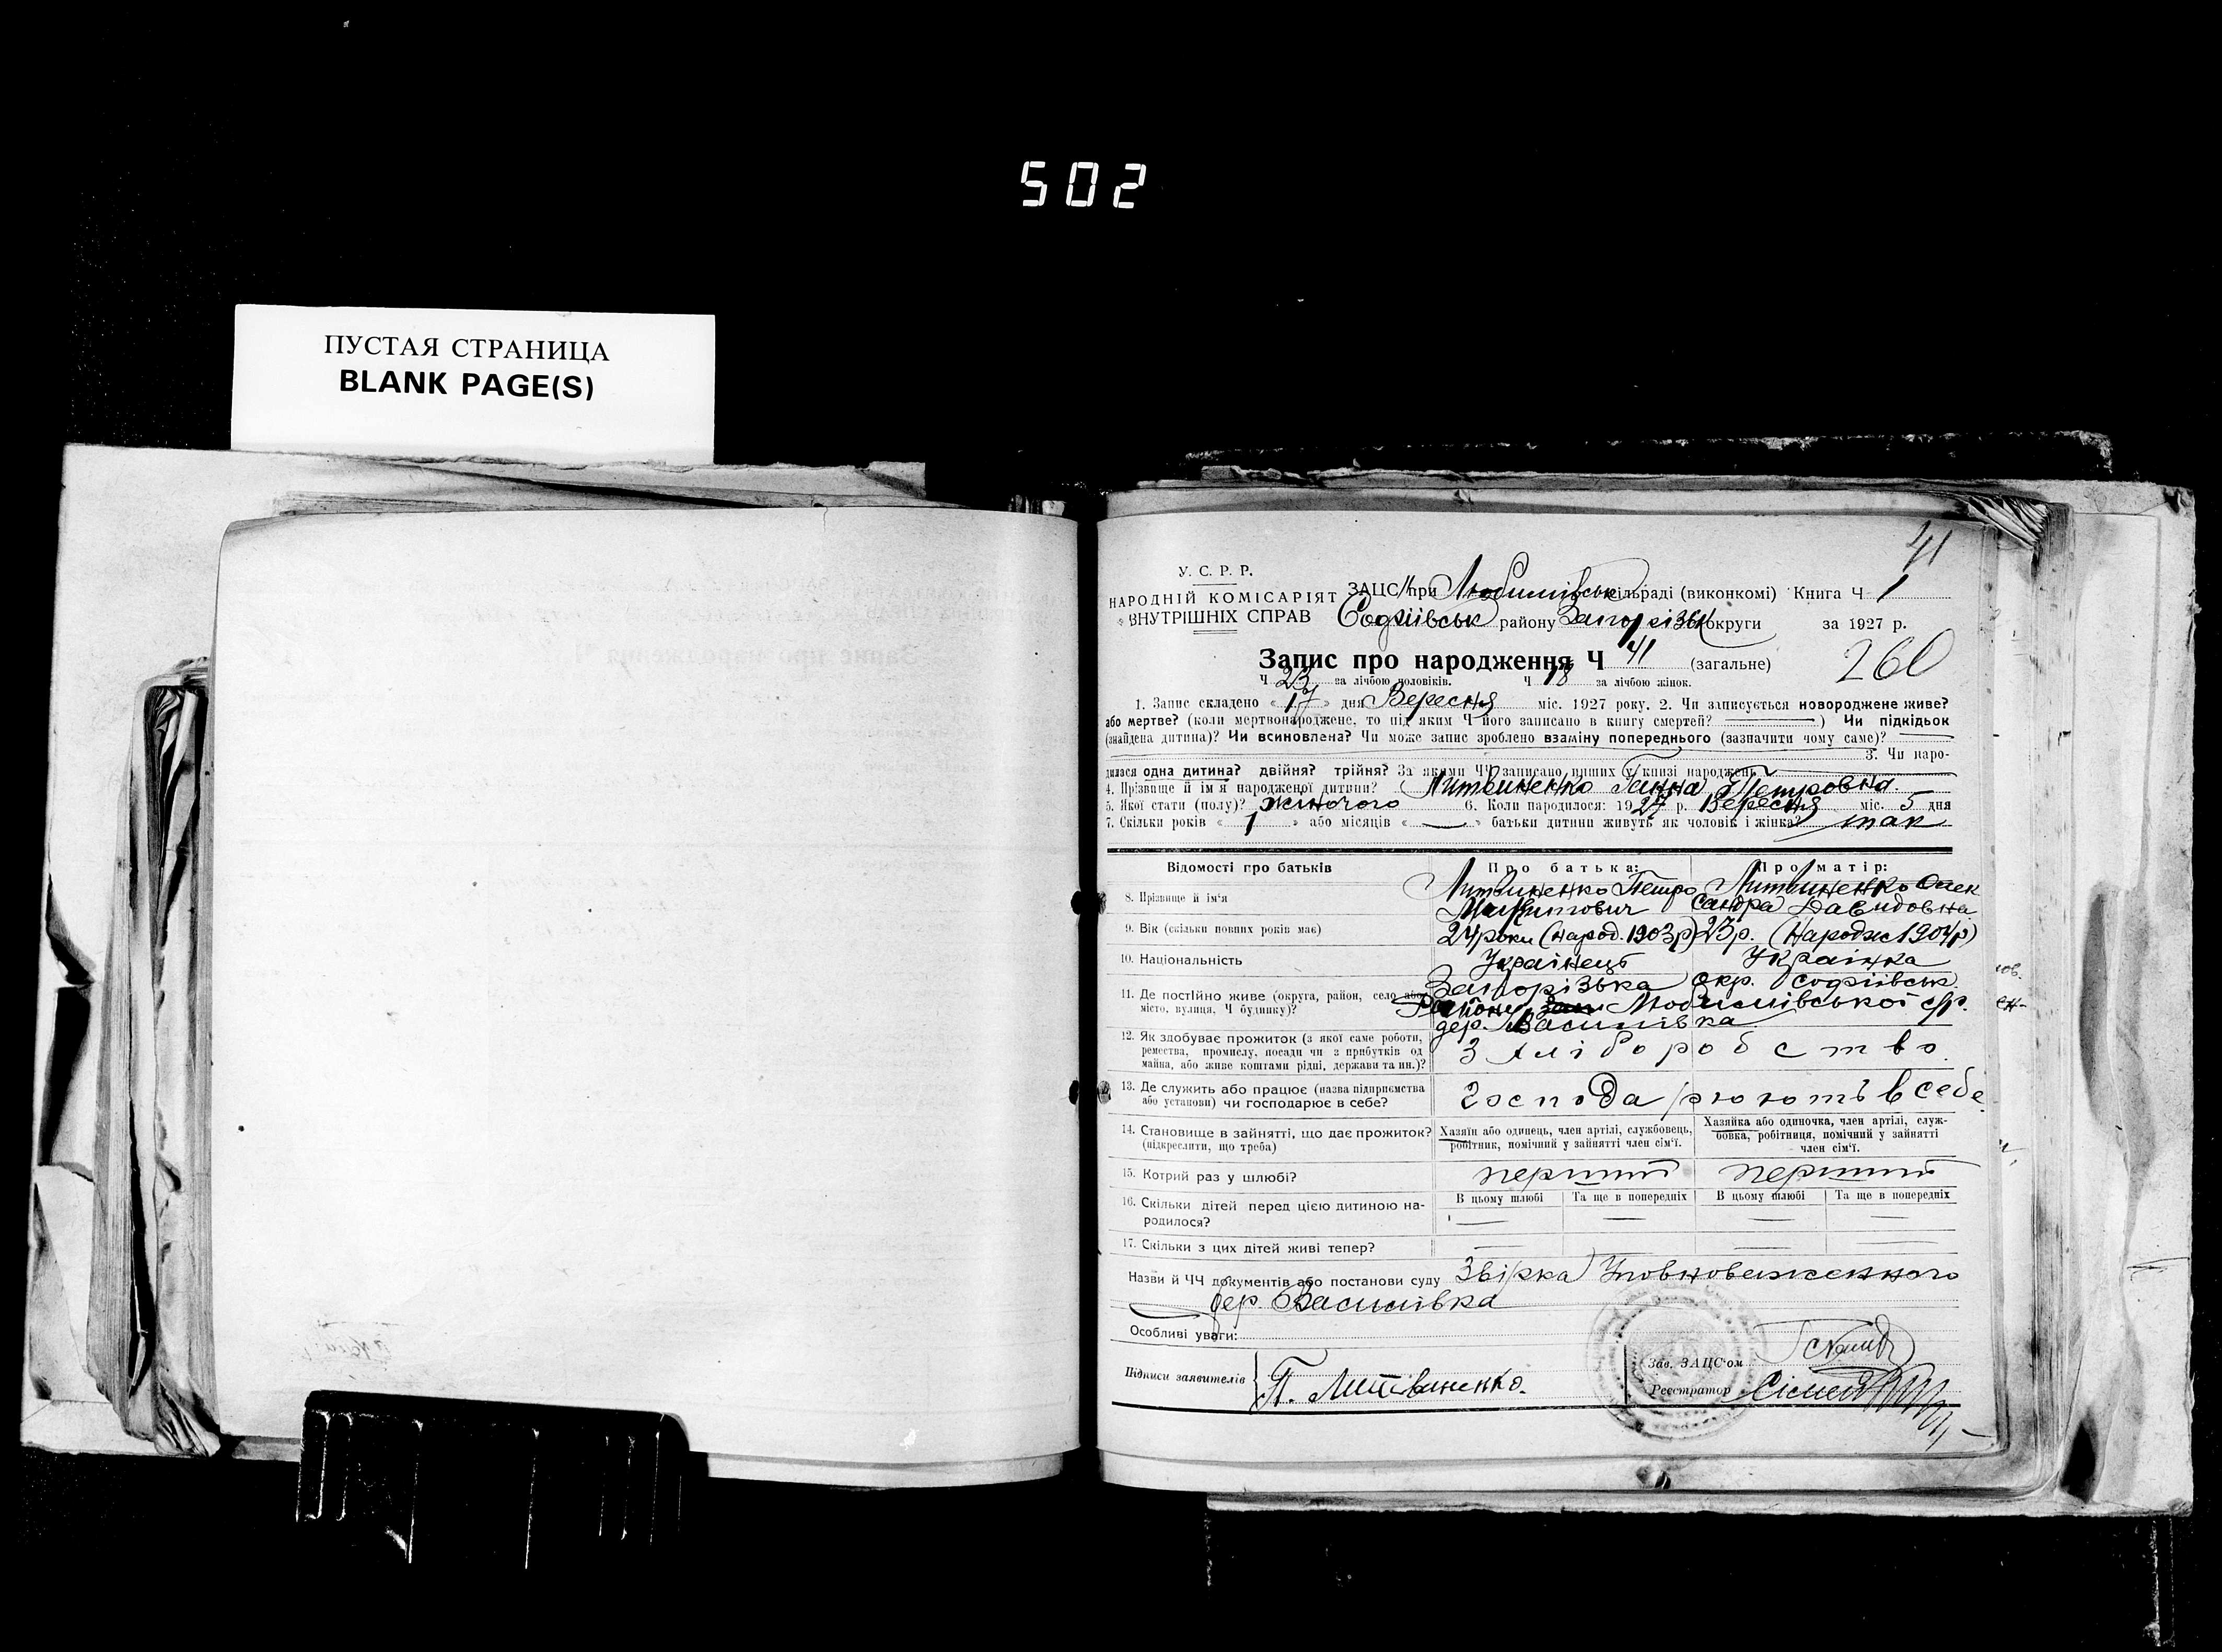 502
ПУСТАЯ СТРАНИЦА
BLANK PAGE(S)
41
У. С. Р. Р.
НАРОДНІЙ КОМІСАРІЯТ
ВНУТРІШНІХ СПРАВ
ЗАЦС при Любимівськ сільраді (виконкомі) Книга Ч 1
Софіївськ району Запорізьк округи за 1927 р.
Запис про народження Ч 41 (загальне) 260
Ч 23 за лічбою чоловіків. Ч 18 за лічбою жінок.
1. Запис складено « 17 » дня Вересня міс. 1927 року. 2. Чи записується новороджене живе?
або мертве? (коли мертвонароджене, то під яким Ч його записано в книгу смертей? ) Чи підкідьок
(знайдена дитина)? Чи всиновлена? Чи може запис зроблено взаміну попереднього (зазначити чому саме)?
3. Чи наро-
дилася одна дитина? двійня? трійня? За якими ЧЧ записано инших у книзі народжень
4. Прізвище й ім'я народженої дитини? Литвиненко Ганна Петровна.
5. Якої стати (полу)? жіночого 6. Коли народилося: 1927 р. Вересня міс. 5 дня
7. Скільки років « 1 » або місяців « — » батьки дитини живуть як чоловік і жінка? так
Відомості про батьків Про батька: Про матір:
8. Прізвище й ім'я Литвиненко Петро Литвиненко Олек
сандра Давидовна
9. Вік (скільки повних років має) 24 роки (народ. 1903 р) 23 р. (Народж 1904 р)
10. Національність Українець Українка
11. Де постійно живе (округа, район, село або
місто, вулиця, Ч будинку)?
Запорізька Окр. Софіївськ.
Району Любимівської с/р.
дер. Василівка
12. Як здобуває прожиток (з якої саме роботи,
ремества, промислу, посади чи з прибутків од
майна, або живе коштами рідні, держави та ин.)?
З хліборобства
13. Де служить або працює (назва підприємства
або установи) чи господарює в себе?
Господарюють в себе
14. Становище в зайнятті, що дає прожиток?
(підкреслити, що треба)
Хазяїн або одинець, член артілі, службовець,
робітник, помічний у зайнятті член сім'ї.
Хазяйка або одиночка, член артілі, служ-
бовка, робітниця, помічний у зайнятті
член сім'ї.
15. Котрий раз у шлюбі? перший перший
16. Скільки дітей перед цією дитиною на-
родилося?
В цьому шлюбі Та ще в попередніх В цьому шлюбі Та ще в попередніх
— — — —
17. Скільки з цих дітей живі тепер? — — — —
Назви й ЧЧ документів або постанови суду Звірка Уповноваженного
дер. Василівка
Особливі уваги:
Підписи заявителів П. Литвиненко.
Зав. ЗАЦС'ом
Реєстратор